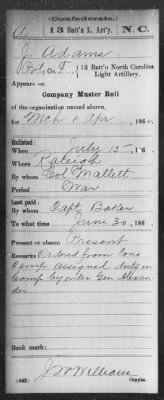 (Confederate.)
A 13 Batt'n L. Art'y. N. C.
J. Adams
Co. F, 13 Batt'n North Carolina
Light Artillery.
Appears on
Company Muster Roll
of the organization named above,
for Mch & Apr, 186
Enlisted:
When July 15, 186
Where Raleigh
By whom Col Mallett
Period War
Last paid:
By whom Capt Baker
To what time June 30, 186
Present or absent Present
Remarks: Ordered from Cons
Camp assigned duty in
Comp by order Gen Alexan
der
Book mark:
J W William
(642) Copyist.